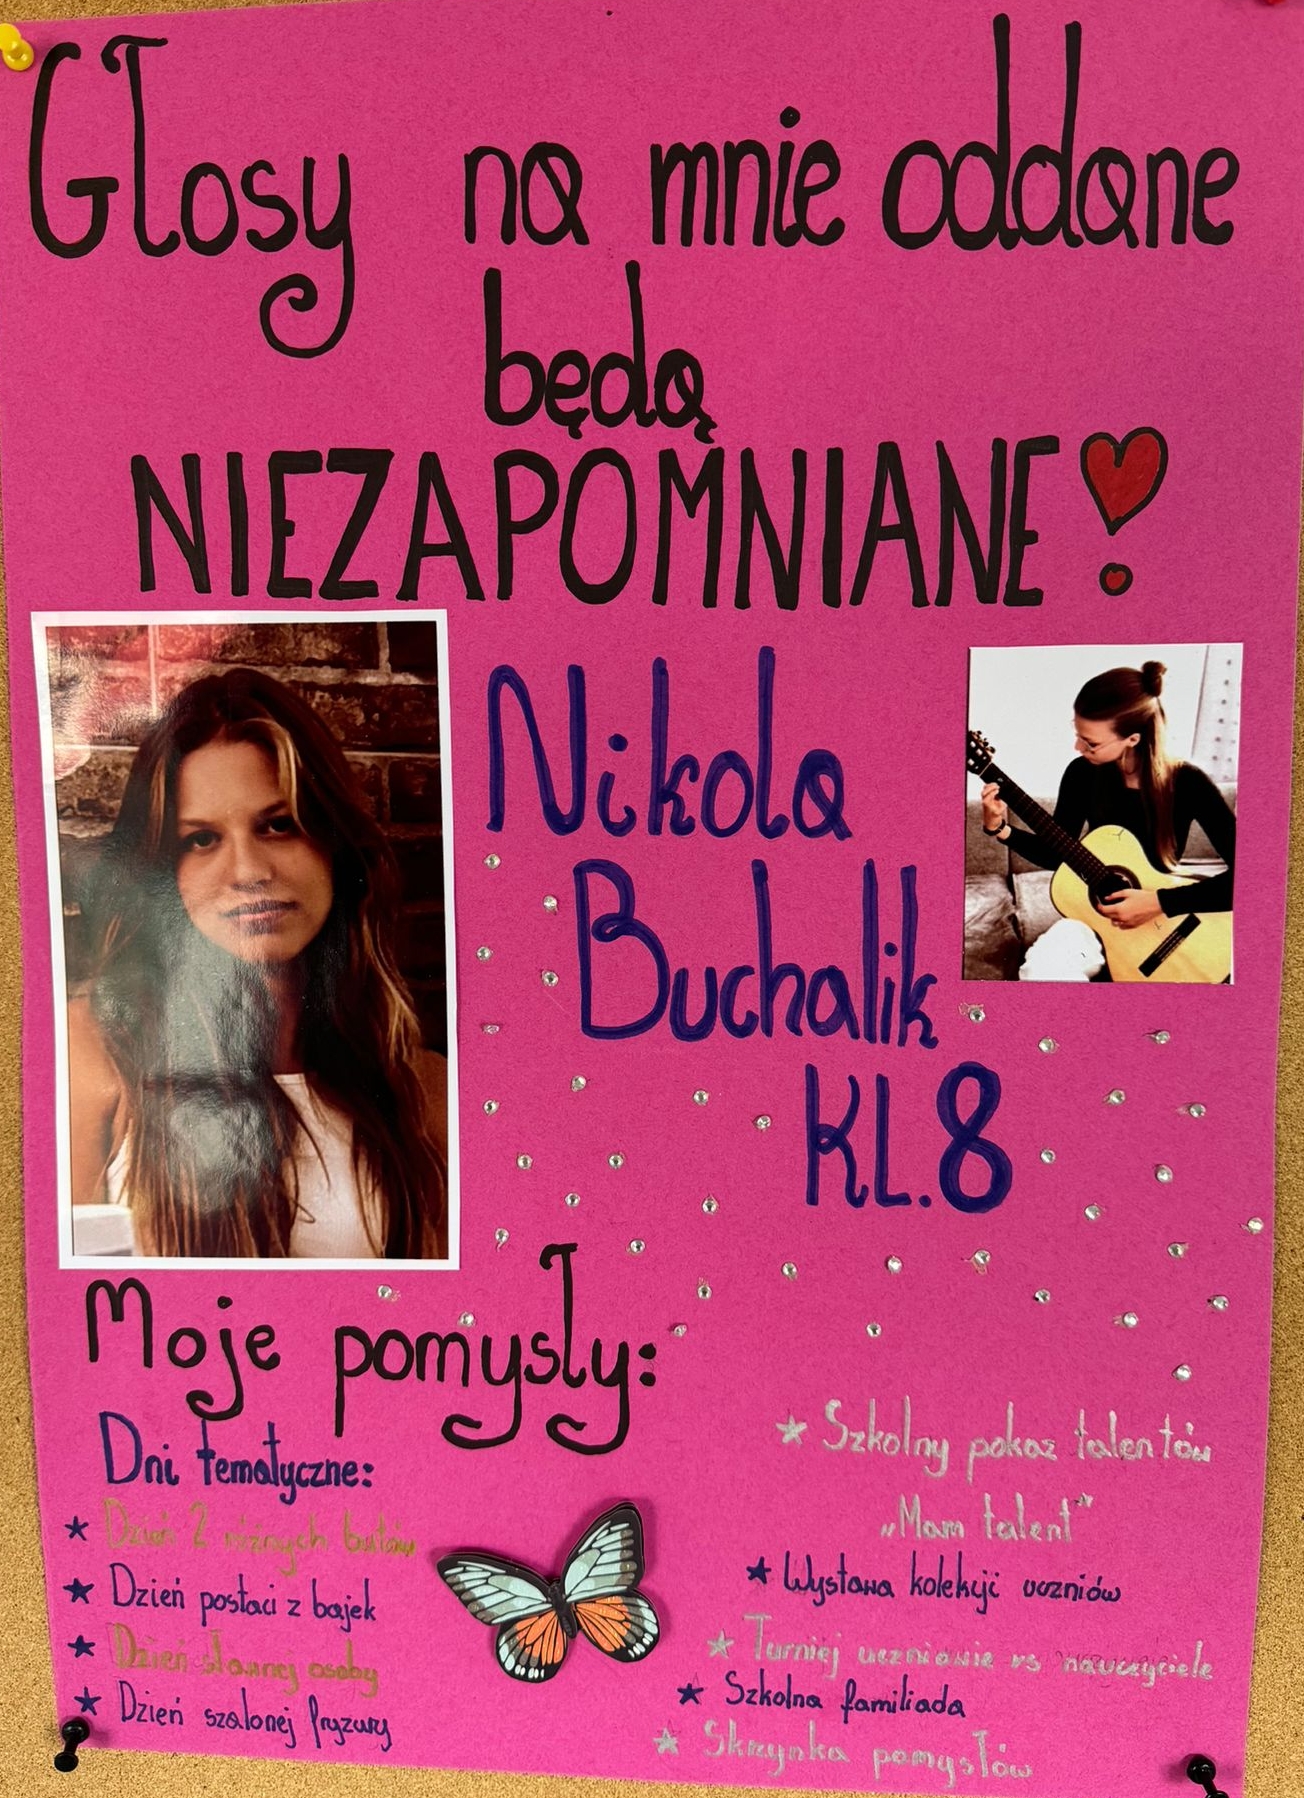 Głosy na mnie oddane
będą
NIEZAPOMNIANE!
Nikola
Buchalik
KL.8
Moje pomysły:
Dni tematyczne:
★ Dzień 2 różnych butów
★ Dzień postaci z bajek
★ Dzień sławnej osoby
★ Dzień szalonej fryzury
★ Szkolny pokaz talentów
„Mam talent"
★ Wystawa kolekcji uczniów
★ Turniej uczniowie vs nauczyciele
★ Szkolna familiada
★ Skrzynka pomysłów